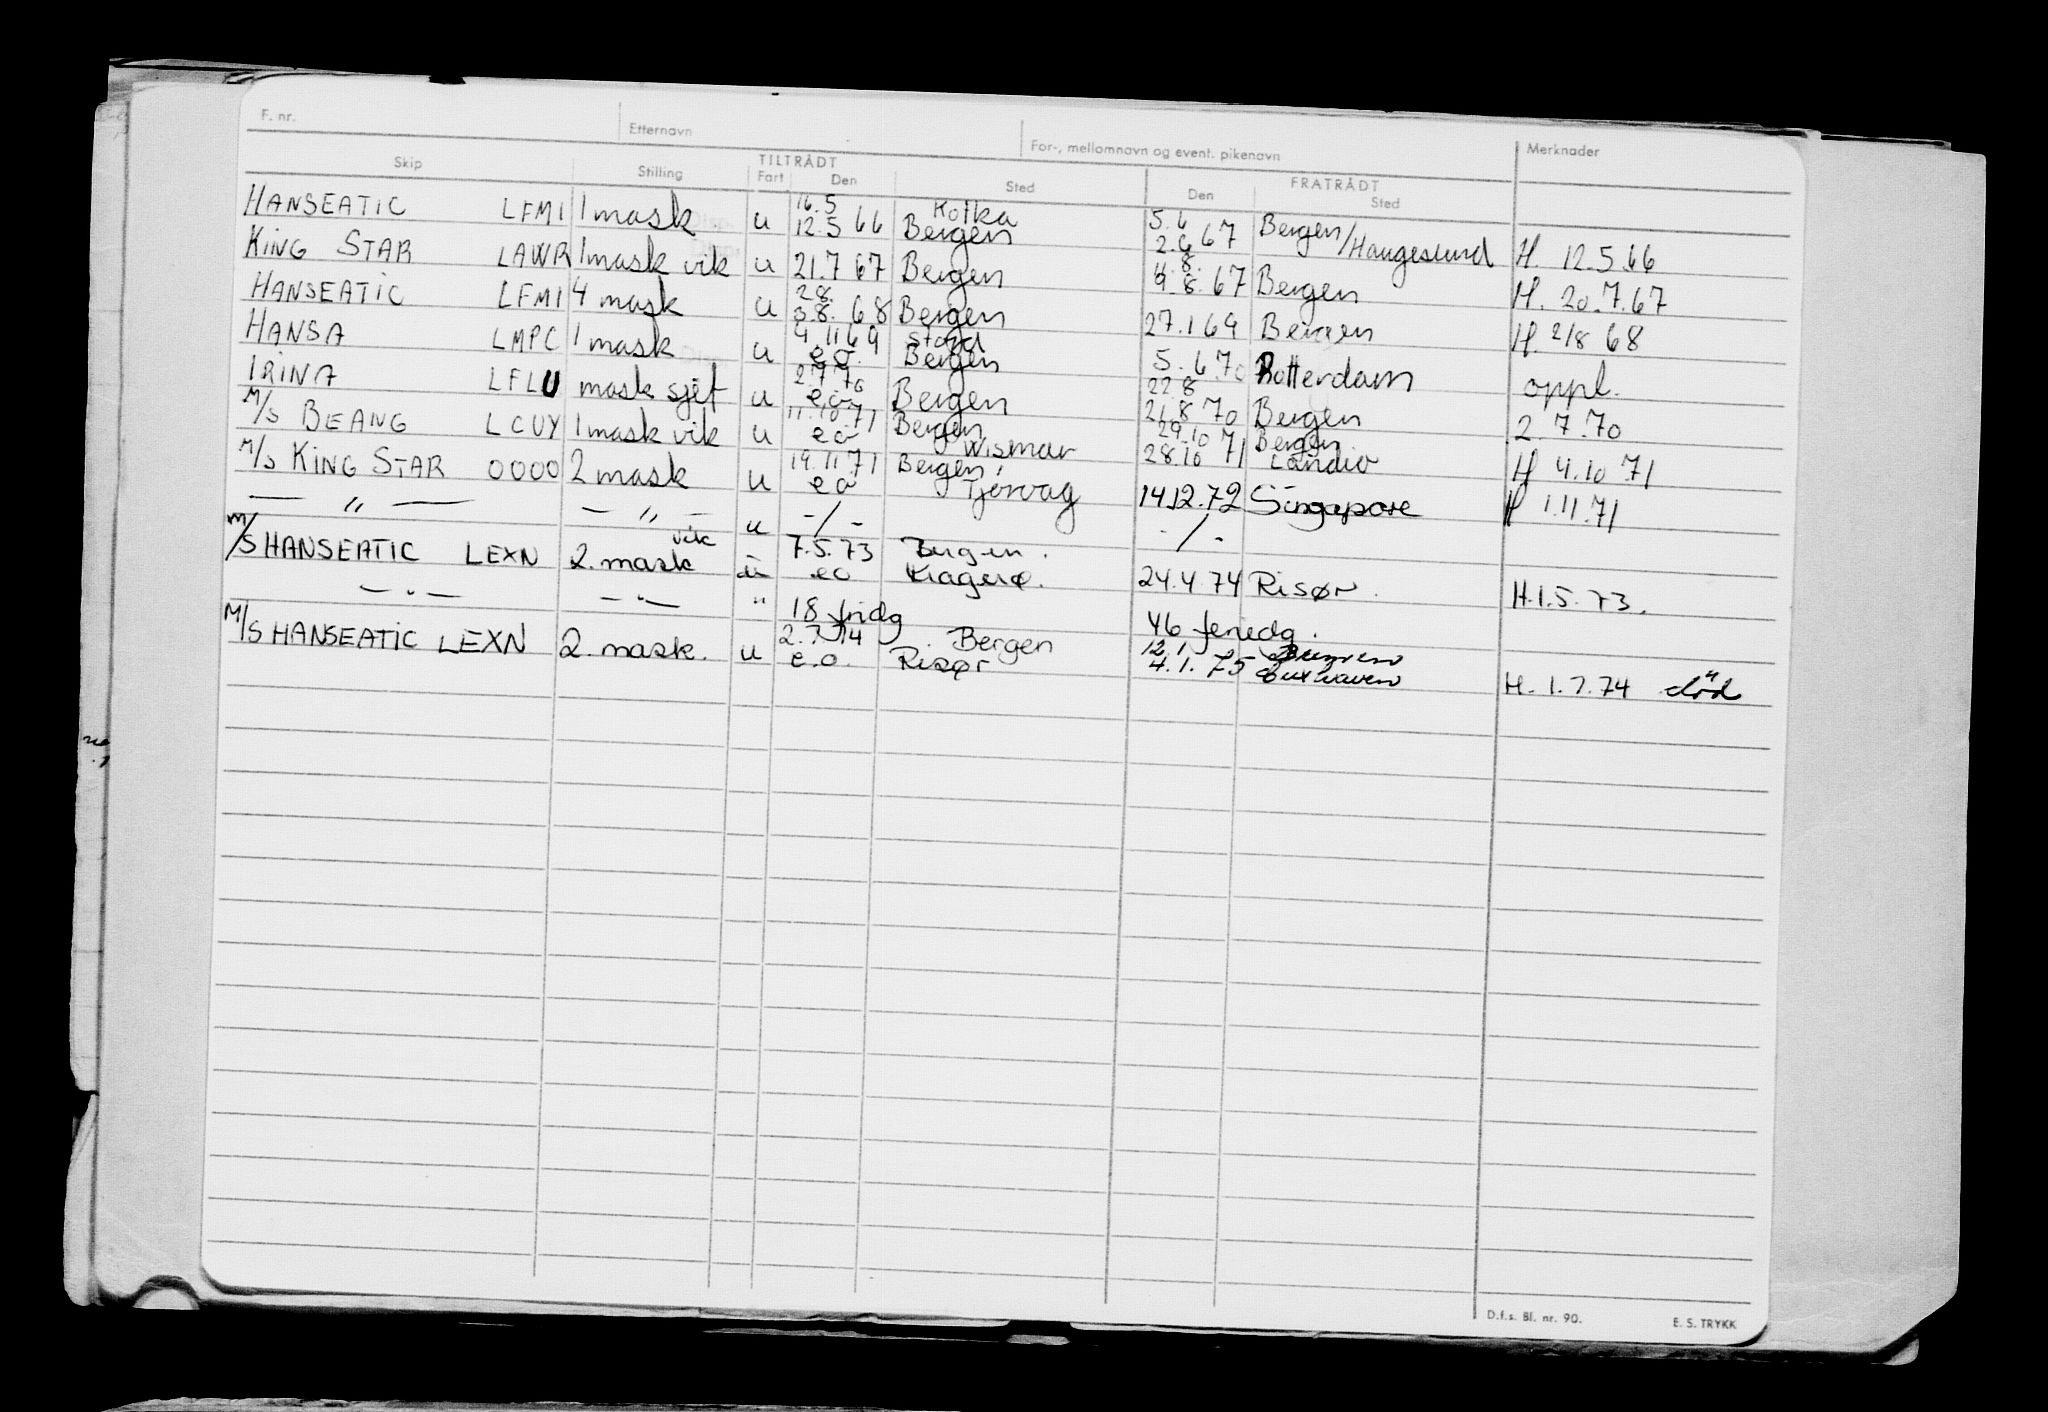 F. nr. Etternavn For-, mellomnavn og event. pikenavn Merknader
TILTRÅDT FRATRÅDT
Skip Stilling Fart Den Sted Den Sted
16.5 Kotka 5.6
HANSEATIC LFMI 1 mask u 12.5 66 Bergen 2.6 67 Bergen/Haugesund H. 12.5.66
KING STAR LAWR 1 mask vik u 21.7 67 Bergen 9.8.67 Bergen H. 20.7.67
28.
HANSEATIC LFMI 4 mask u 3.8. 68 Bergen 27.1 69 Bergen H. 2/8 68
4.11 69 Stord
HANSA LMPC 1 mask u eo. Bergen 5.6.70 Rotterdam oppl.
2.7 70 22 8
IRINA LFLU mask sjef u eo Bergen 21.8 70 Bergen 2.7.70
11.10 71 Bergen 29.10 Bergen
M/S BEANG LCUY 1 mask vik u eo Wismar 28.10 71 H 4.10 71
19.11 71 Bergen,
M/S KING STAR OOOO 2 mask u eo Tjørvåg 14.12.72 Singapore H 1.11.71
— „ — — „ — u -/- -/-
vik 7.5.73 Bergen.
M/S HANSEATIC LEXN 2. mask u eo Kragerø. 24.4.74 Risør. H.1.5.73.
— „ — — „ — " 18 fridg 46 feriedg.
2.7.74 Bergen 12.1
M/S HANSEATIC LEXN 2. mask. u e.o. Risør 4.1.75 Cuxhaven H. 1.7.74 død
D.f.s. Bl. nr. 90. E. S. TRYKK